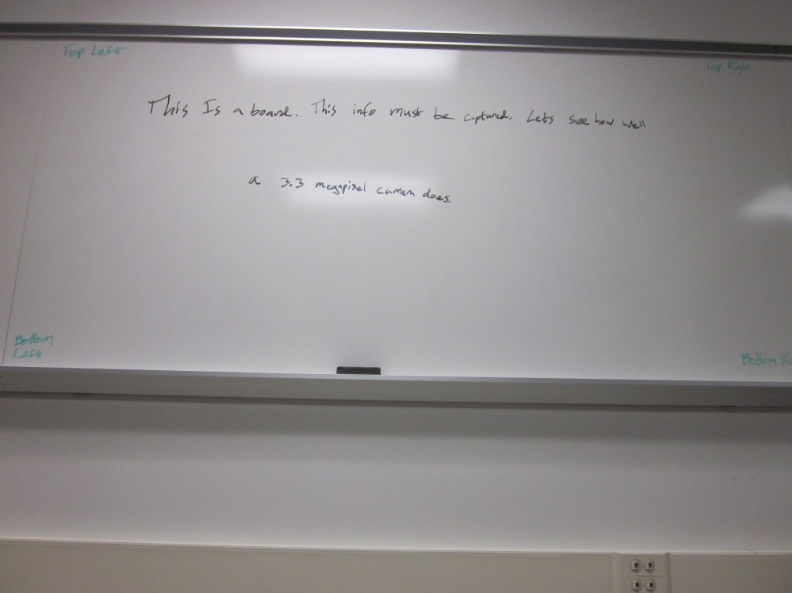 Top Left
Top Right
This Is a board. This info must be captured. Lets see how well
a 3.3 megapixel camera does.
Bottom
Left
Bottom